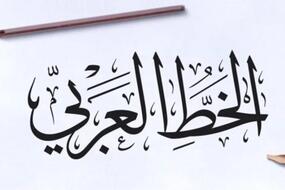 الخطُّ العربيّ